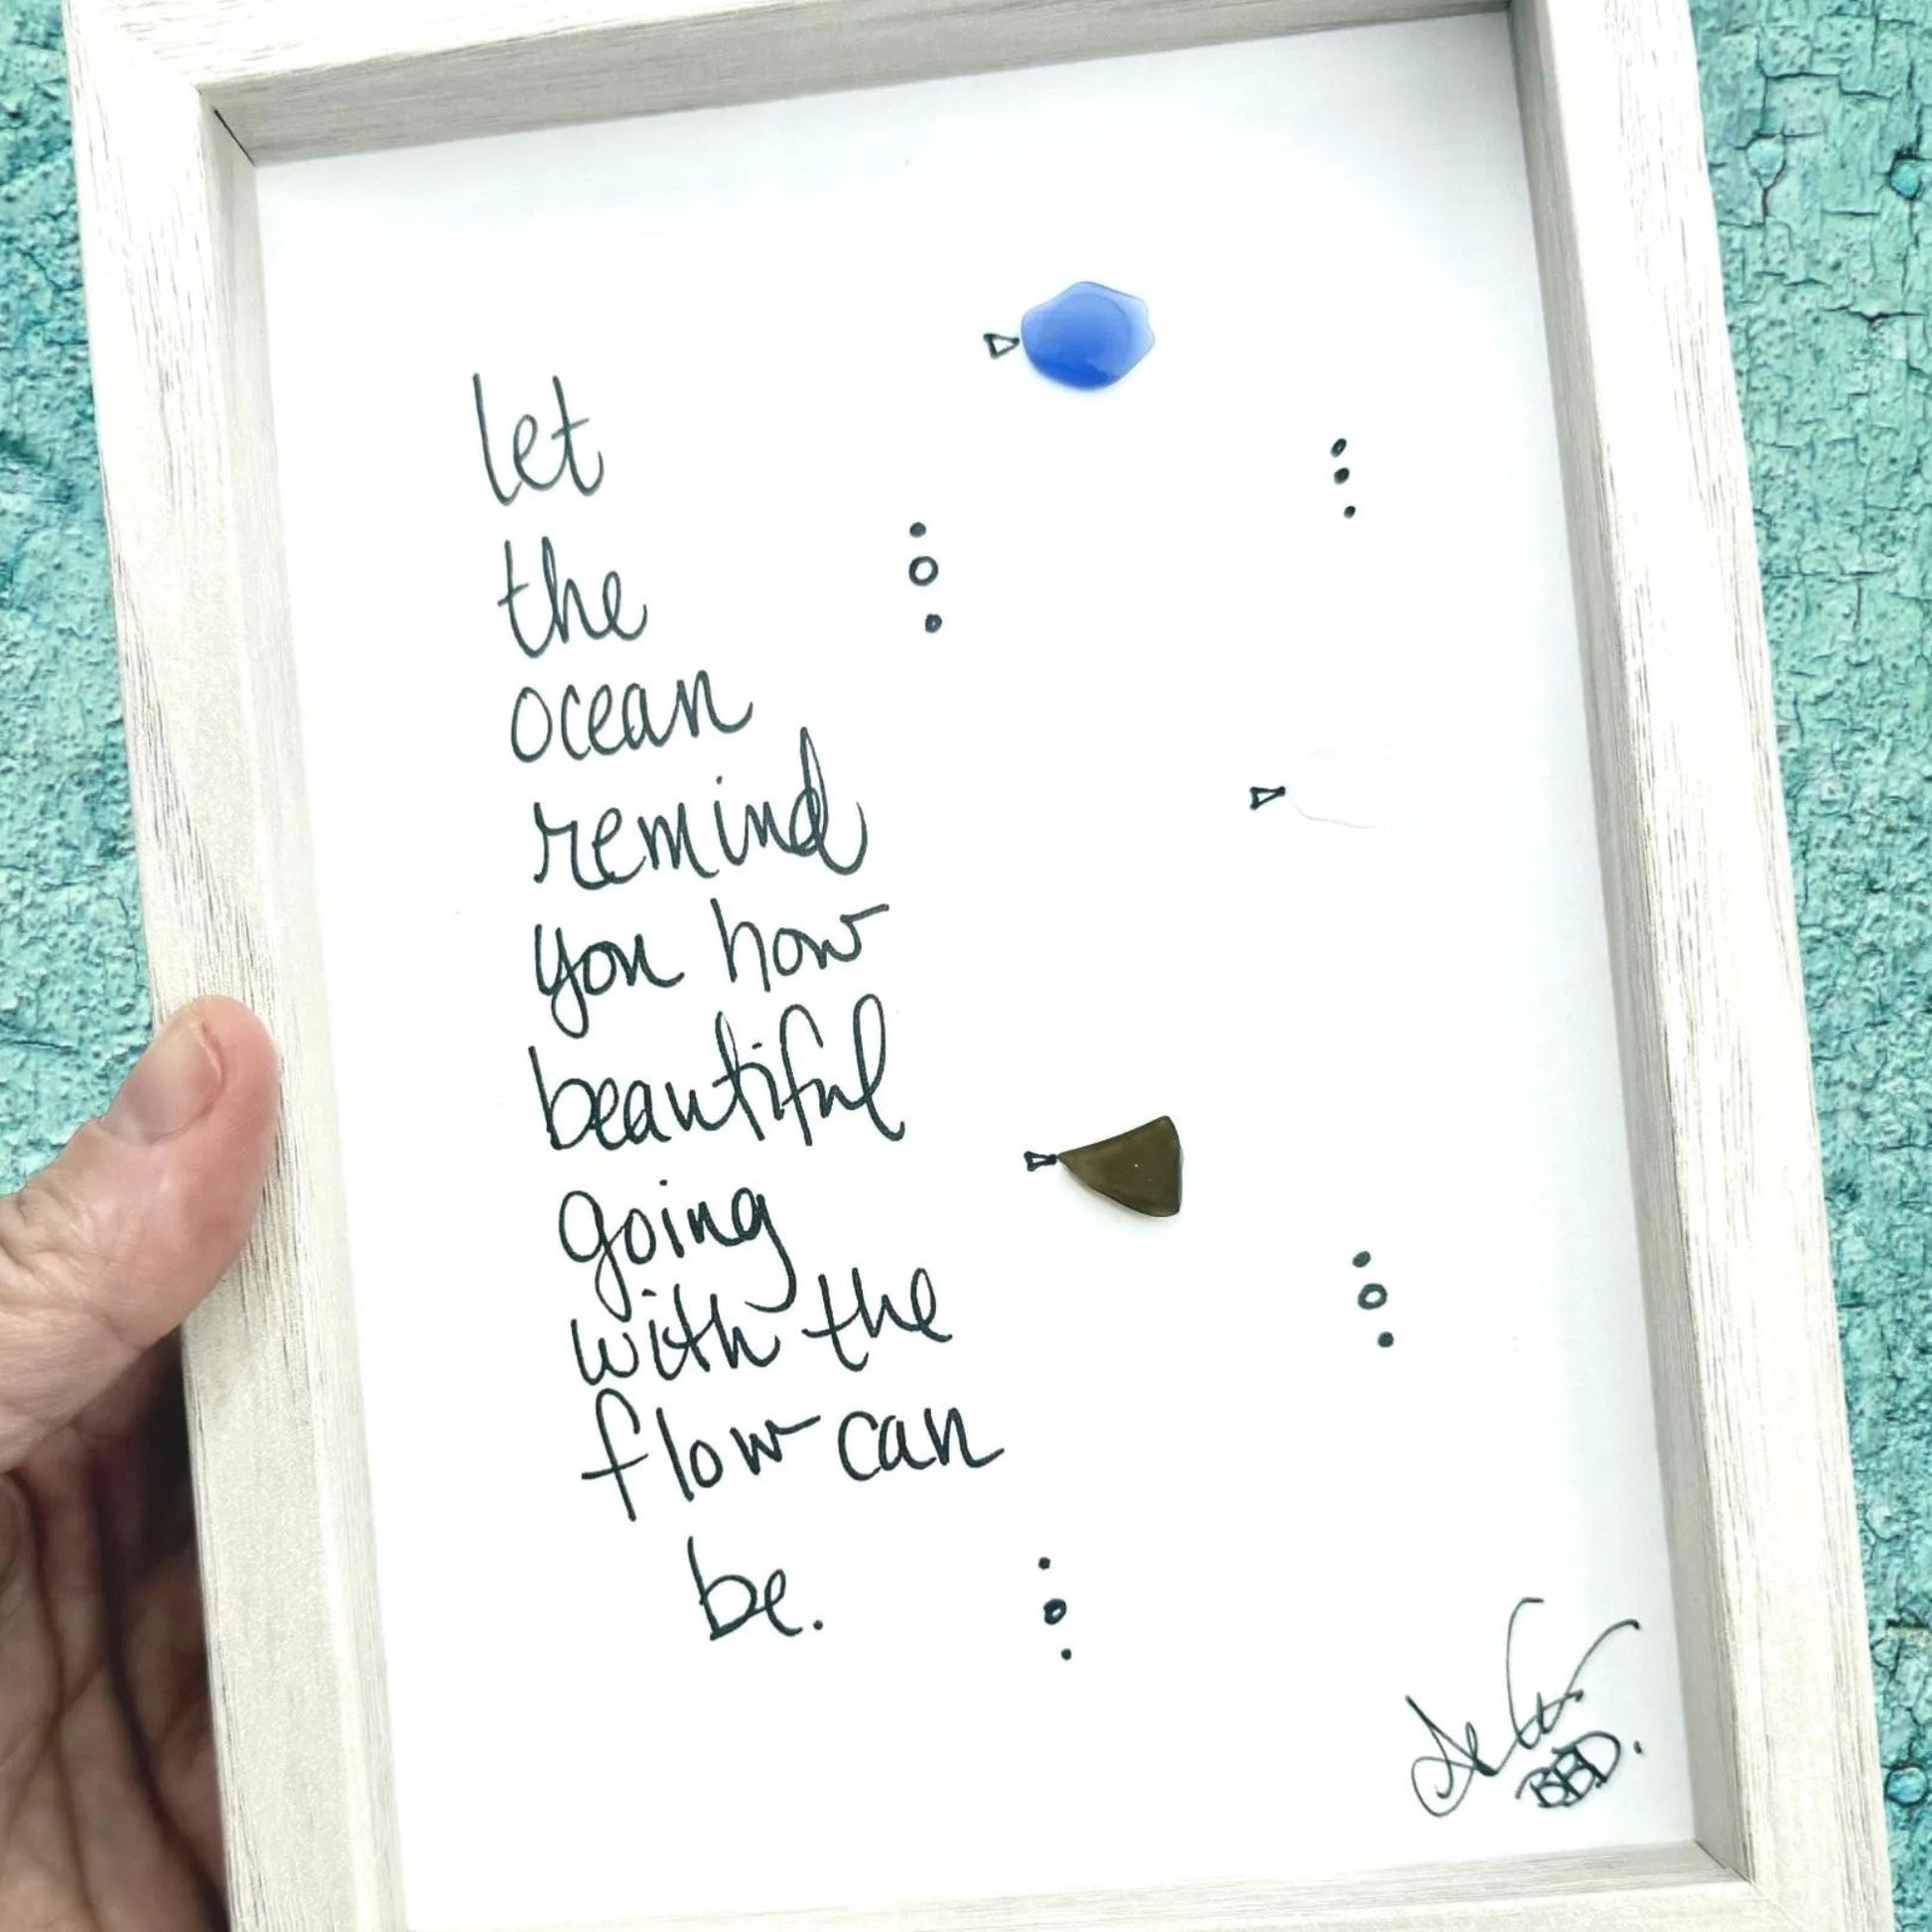 let
the
ocean
remind
you how
beautiful
going
with the
flow can
be.
BBD.